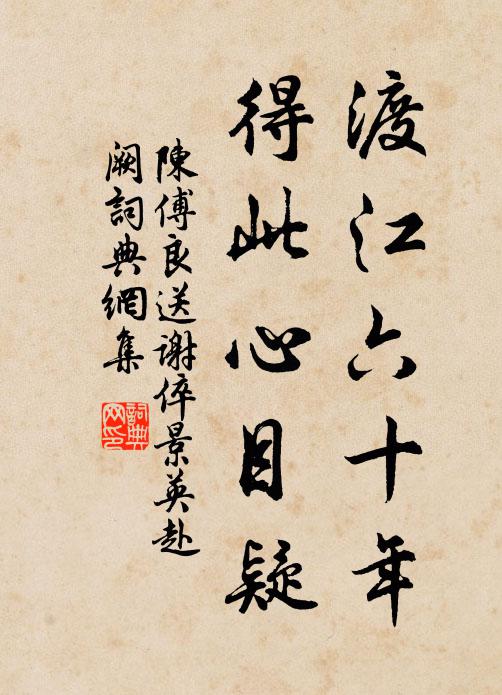 渡江六十年
得此心目疑
陳傅良送謝倅景英赴
闕詞典網集
詞典网印